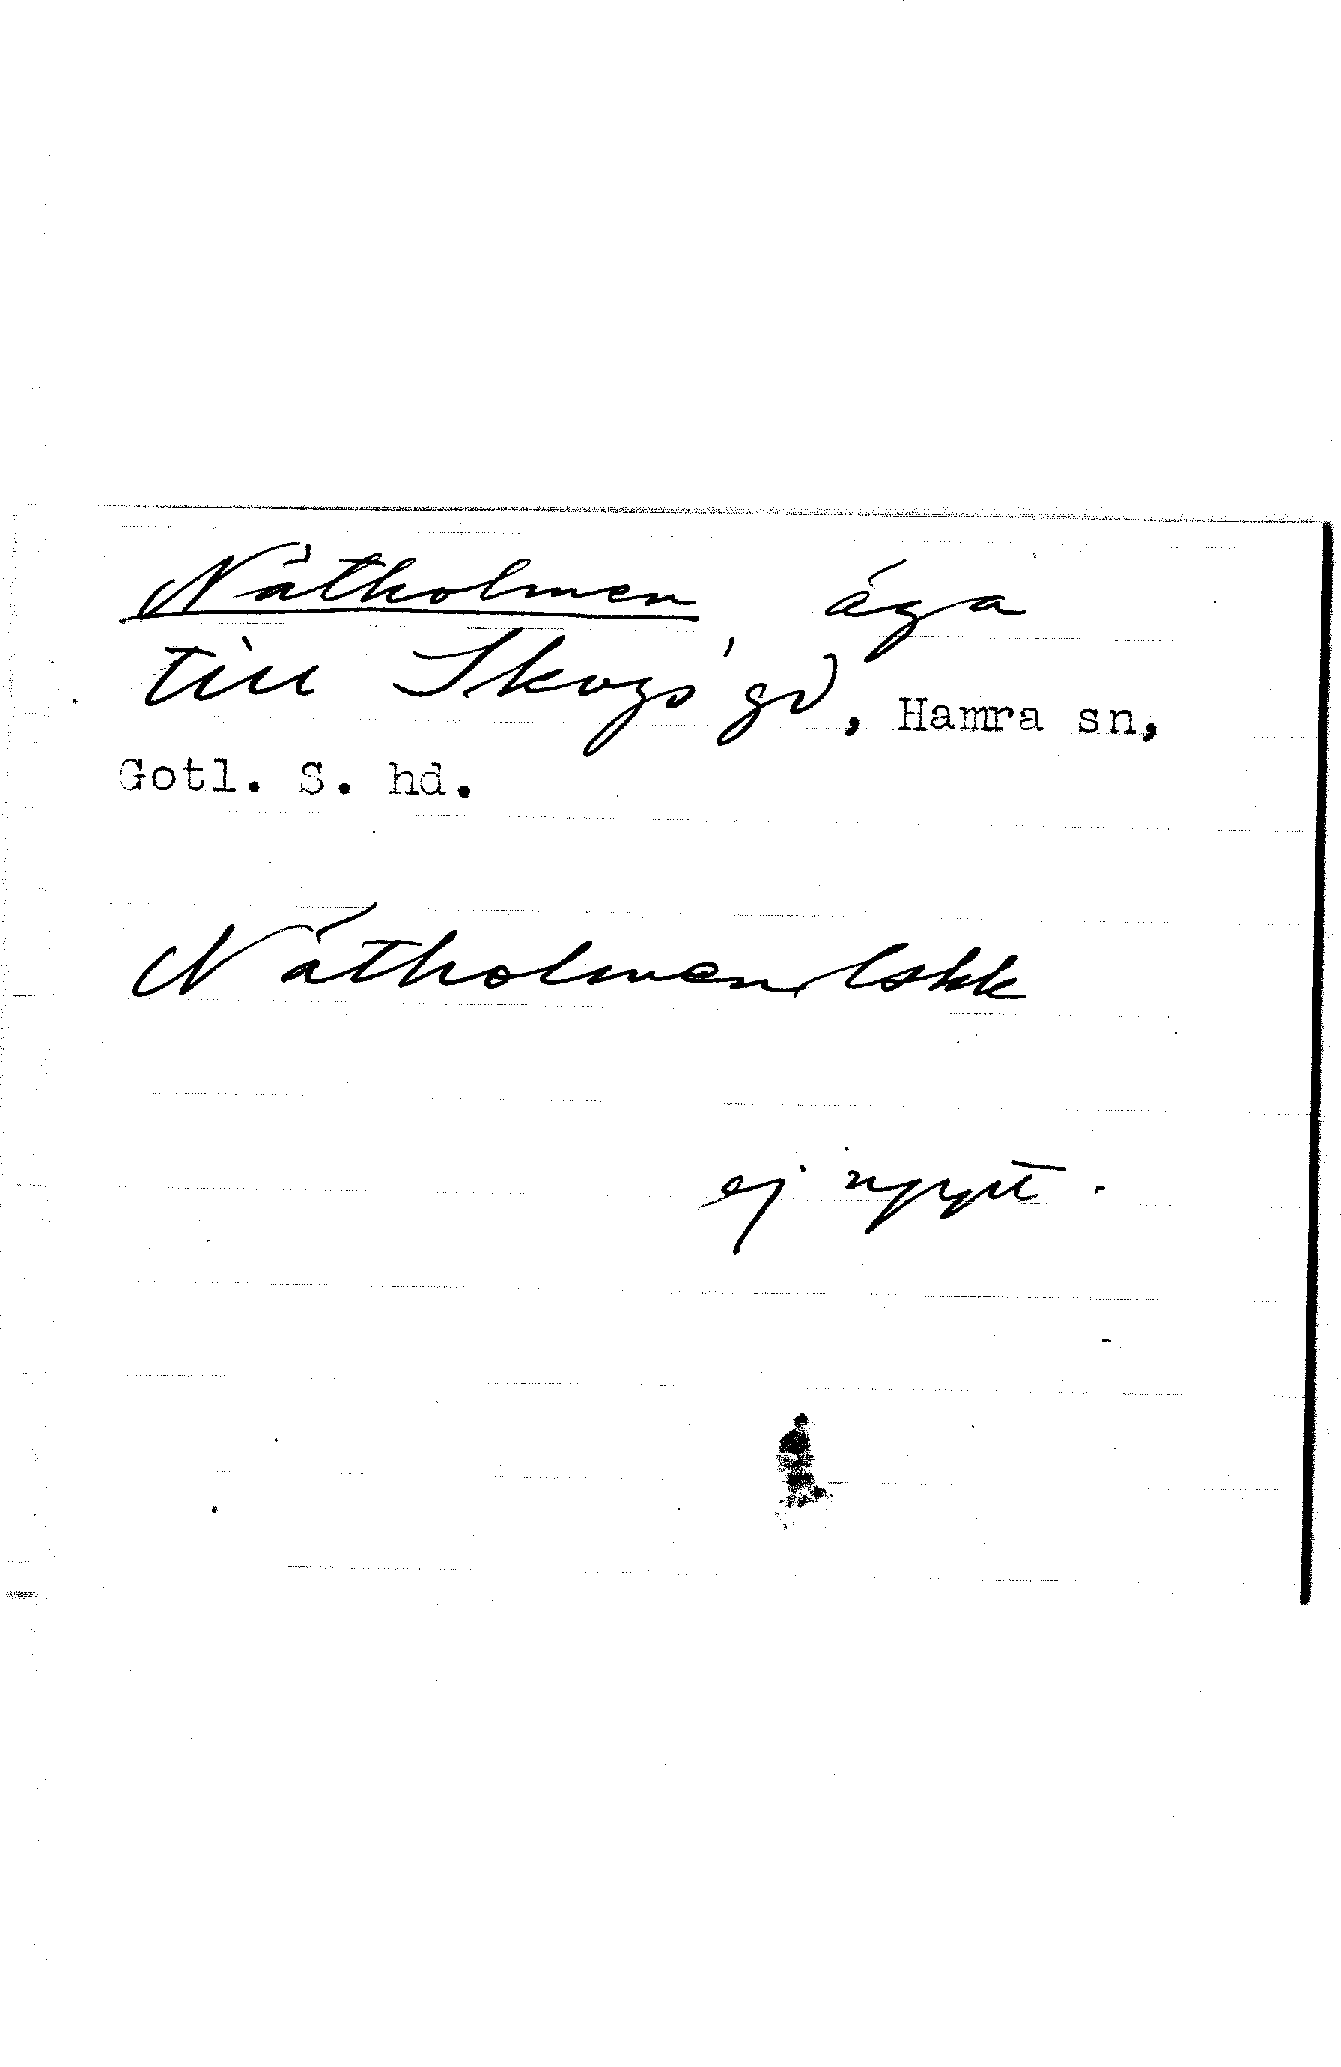 Nätholmen, äga
till Skogs gd, Hamra sn,
Gotl. S. hd.
Nätholmen, lskk
ej uppt.